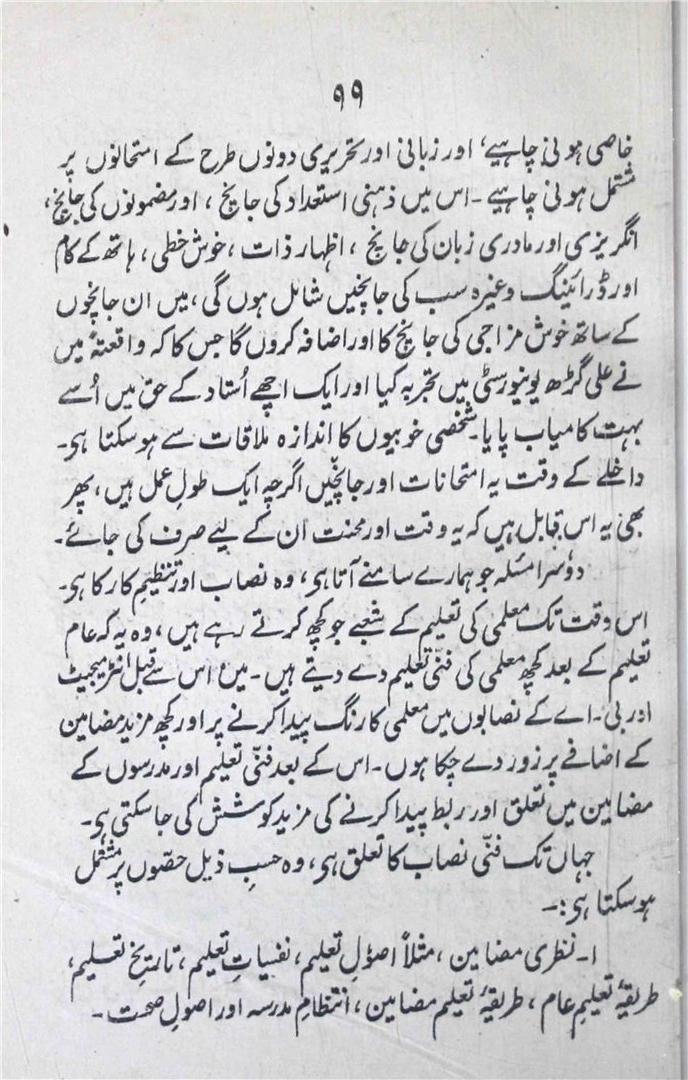 ۹۹
خاصی ہونی چاہیے، اور زبانی اور تحریری دونوں طرح کے امتحانوں پر
مشتمل ہونی چاہیے۔ اس میں ذہنی استعداد کی جانچ، اور مضمونوں کی جانچ،
انگریزی اور مادری زبان کی جانچ، اظہار ذات، خوش خطی، ہاتھ کے کام
اور ڈرائینگ وغیرہ سب کی جانچیں شامل ہوں گی، میں ان جانچوں
کے ساتھ خوش مزاجی کی جانچ کا اور اضافہ کروں گا جس کا کہ واقعتہً میں
نے علی گڑھ یونیورسٹی میں تجربہ کیا اور ایک اچھے اُستاد کے حق میں اُسے
بہت کامیاب پایا۔ شخصی خوبیوں کا اندازہ ملاقات سے ہو سکتا ہی۔
داخلے کے وقت یہ امتحانات اور جانچیں اگرچہ ایک طولِ عمل ہیں، پھر
بھی یہ اس قابل ہیں کہ یہ وقت اور محنت ان کے لیے صرف کی جائے۔
دوُسرا مسئلہ جو ہمارے سامنے آتا ہی، وہ نصاب اور تنظیمِ کار کا ہی۔
اس وقت تک معلمی کی تعلیم کے شعبے جو کچھ کرتے رہے ہیں، وہ یہ کہ عام
تعلیم کے بعد کچھ معلمی کی فنّی تعلیم دے دیتے ہیں۔ میں اس سے قبل انٹرمیجیٹ
اور بی۔ اے کے نصابوں میں معلمی کا رنگ پیدا کرنے پر اور کچھ مزید مضامین
کے اضافے پر زور دے چکا ہوں۔ اس کے بعد فنّی تعلیم اور مدرسوں کے
مضامین میں تعلق اور ربط پیدا کرنے کی مزید کوشش کی جا سکتی ہی۔
جہاں تک فنّی نصاب کا تعلق ہی، وہ حسبِ ذیل حصّوں پر مشتمل
ہو سکتا ہی:۔
۱۔ نظری مضامین، مثلاً اصوُلِ تعلیم، نفسیاتِ تعلیم، تاریخِ تعلیم،
طریقۂ تعلیمِ عام، طریقۂ تعلیم مضامین، انتظامِ مدرسہ اور اصولِ صحت۔